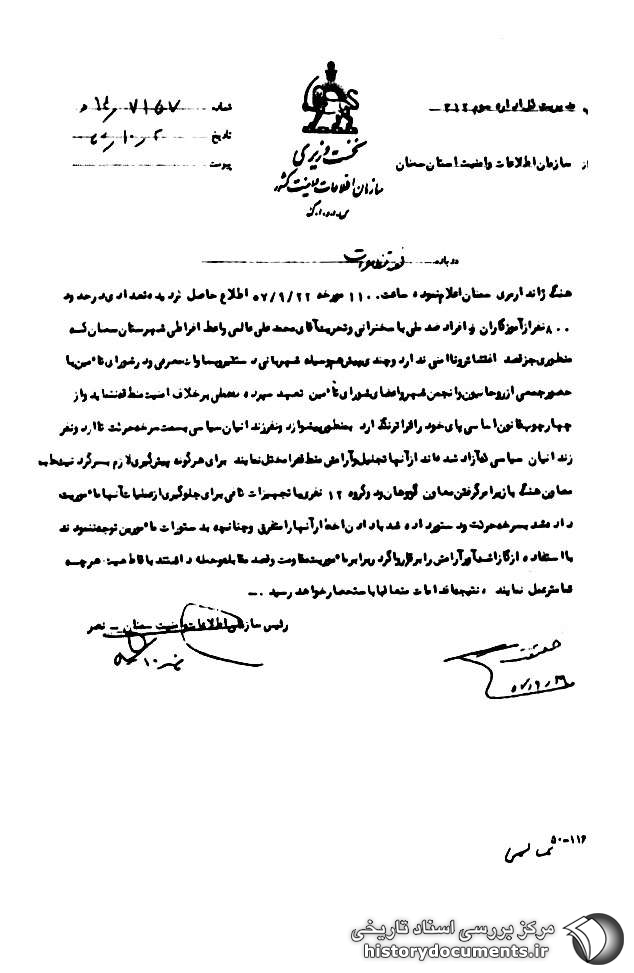 مدیریت کل اداره سوم ۳۱۲
شماره
تاریخ
پیوست
نخست وزیری
سازمان اطلاعات و امنیت کشور
از سازمان اطلاعات و امنیت استان سمنان
درباره
هنگ ژاندارمری سمنان اعلام نموده ساعت ۱۱۰۰ مورخه ۵۷/۹/۲۲ اطلاع حاصل گردیده تعدادی در حدود
۸۰۰ نفر از آموزگاران و افراد ضد ملی با سخنرانی و تحریک آقای محمد علی عالمی واعظ افراطی شهرستان سمنان که
منظوری جز قصد اغتشاش و ناامنی ندارد و چندی پیش هم وسیله شهربانی دستگیر و بساواک معرفی و در شورای تامین با
حضور جمعی از روحانیون و انجمن شهر و اعضای شورای تامین تعهد سپرده که عملی بر خلاف امنیت منطقه ننماید و از
چهارچوب قانون اساسی پای خود را فراتر نگذارد بمنظور پیشواز دو نفر زندانیان سیاسی بسمت سرخه حرکت تا از دو نفر
زندانیان سیاسی که آزاد شده اند از آنها تجلیل و آرامش منطقه را مختل نمایند برای هرگونه پیش گیری لازم بسرگرد
معاون هنگ با زیر امر گرفتن معاون گروهان و دو گروه ۱۲ نفری با تجهیزات کافی برای جلوگیری از عملیات آنها ماموریت
داده شد بسرخه حرکت و دستور داده شد با دادن اخطار آنها را متفرق و چنانچه به دستورات مامورین توجه ننمودند
با استفاده از گاز اشک آور آرامش را برقرار و اگر در برابر ماموریت مقاومت و قصد مقابله و حمله داشتند با قاطعیت هر چه
تمامتر عمل نمایند نتیجه اقدامات متعاقبا باستحضار خواهد رسید
رئیس سازمان اطلاعات و امنیت سمنان - نصر
حقیقت
۵۰-۱۱۶
مرکز بررسی اسناد تاریخی
historydocuments.ir